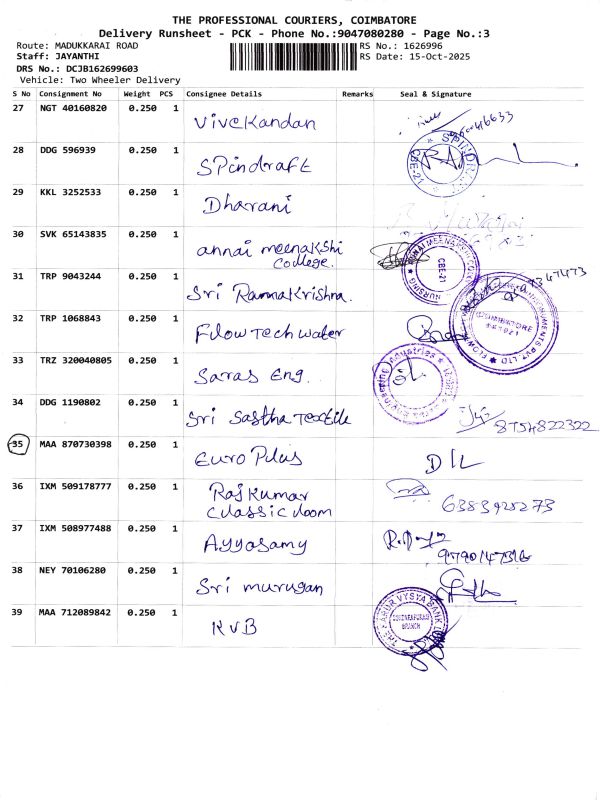 THE PROFESSIONAL COURIERS, COIMBATORE
Delivery Runsheet - PCK - Phone No.:9047080280 - Page No.:3
Route: MADUKKARAI ROAD RS No.: 1626996
Staff: JAYANTHI RS Date: 15-Oct-2025
DRS No.: DCJB162699603
Vehicle: Two Wheeler Delivery
S No Consignment No Weight PCS Consignee Details Remarks Seal & Signature
27 NGT 40160820 0.250 1 Vivekandan
28 DDG 596939 0.250 1 SPindraft CBE-21
29 KKL 3252533 0.250 1 Dharani
30 SVK 65143835 0.250 1 annai meenakshi
college. NURSING CBE-21
31 TRP 9043244 0.250 1 Sri Ramakrishna.
32 TRP 1068843 0.250 1 Flow Tech water
33 TRZ 320040805 0.250 1 Saras Eng.
34 DDG 1190802 0.250 1 Sri Sastha Textile 8754822322
35 MAA 870730398 0.250 1 Euro Plus DIL
36 IXM 509178777 0.250 1 Rajkumar
classic loom 6383920273
37 IXM 508977488 0.250 1 Ayyasamy
38 NEY 70106280 0.250 1 Sri murugan
39 MAA 712089842 0.250 1 KVB THE KARUR VYSYA BANK LTD
BRANCH